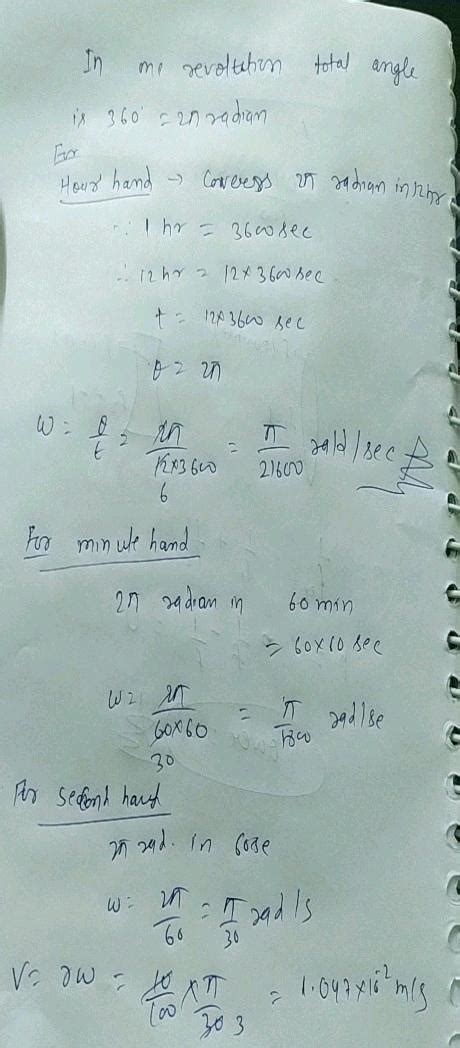 In one revolution total angle
is 360° = 2π radian
For
Hour hand → Coveress 2π radian in 12 hr
∵ 1 hr = 3600 sec
∴ 12 hr = 12 × 3600 sec
t = 12×3600 sec
θ = 2π
ω = θ/t = 2π/12×3600 = π/21600 rad/sec
6
For minute hand
2π radian in 60 min
= 60×60 sec
ω = 2π/60×60 = π/1800 rad/se
30
For second hand
2π rad. in 60se
ω = 2π/60 = π/30 rad/s
V = rω = 10/100 × π/30 3 = 1.047×10⁻² m/s